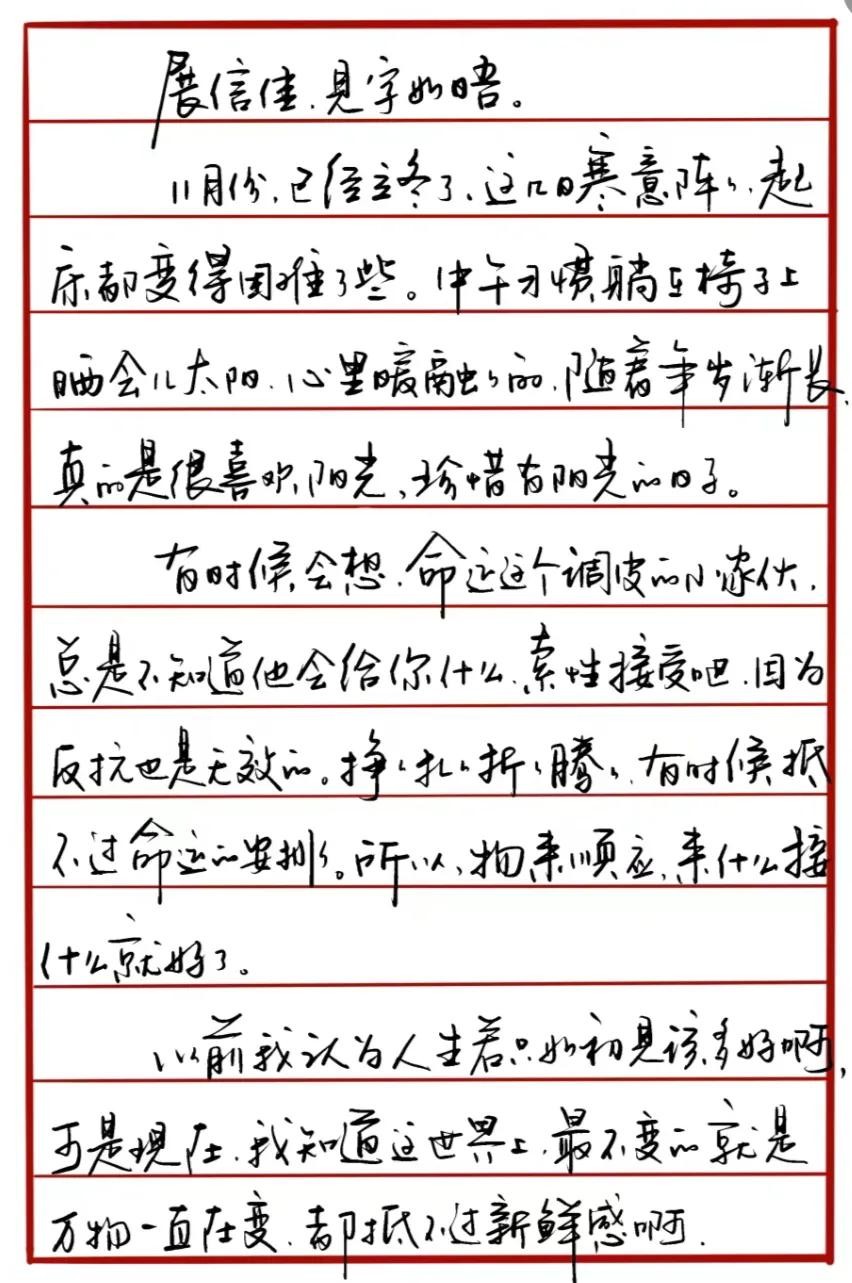 展信佳、见字如晤。
11月份，已经立冬了、这几日寒意阵々，起
床都变得困难了些。中午习惯躺在椅子上
晒会儿太阳、心里暖融々的、随着年岁渐长，
真的是很喜欢阳光、珍惜有阳光的日子。
有时候会想、命运这个调皮的小家伙，
总是不知道他会给你什么、索性接受吧、因为
反抗也是无效的。挣々扎々折々腾々、有时候抵
不过命运的安排。所以，物来顺应、来什么接
什么就好了。
以前我认为人生若只如初见该多好啊，
可是现在、我知道这世界上、最不变的就是
万物一直在变、都抵不过新鲜感啊.